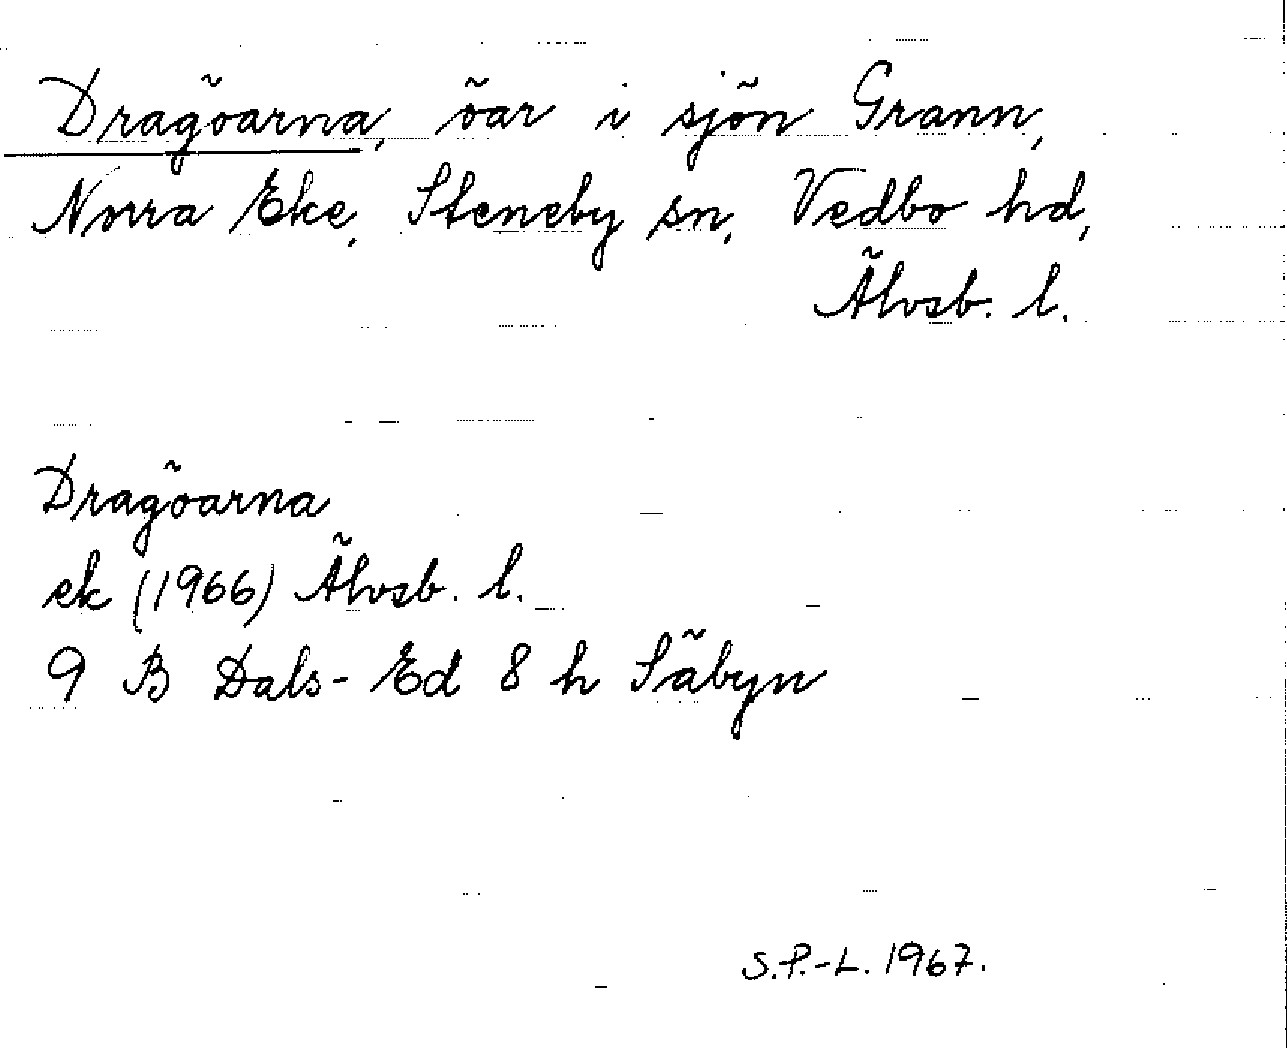 Dragöarna, öar i sjön Grann,
Norra Eke, Steneby sn, Vedbo hd,
Älvsb. l.
Dragöarna
ek (1966) Älvsb. l.
9 B Dals-Ed 8 h Säbyn
S.P.-L. 1967.